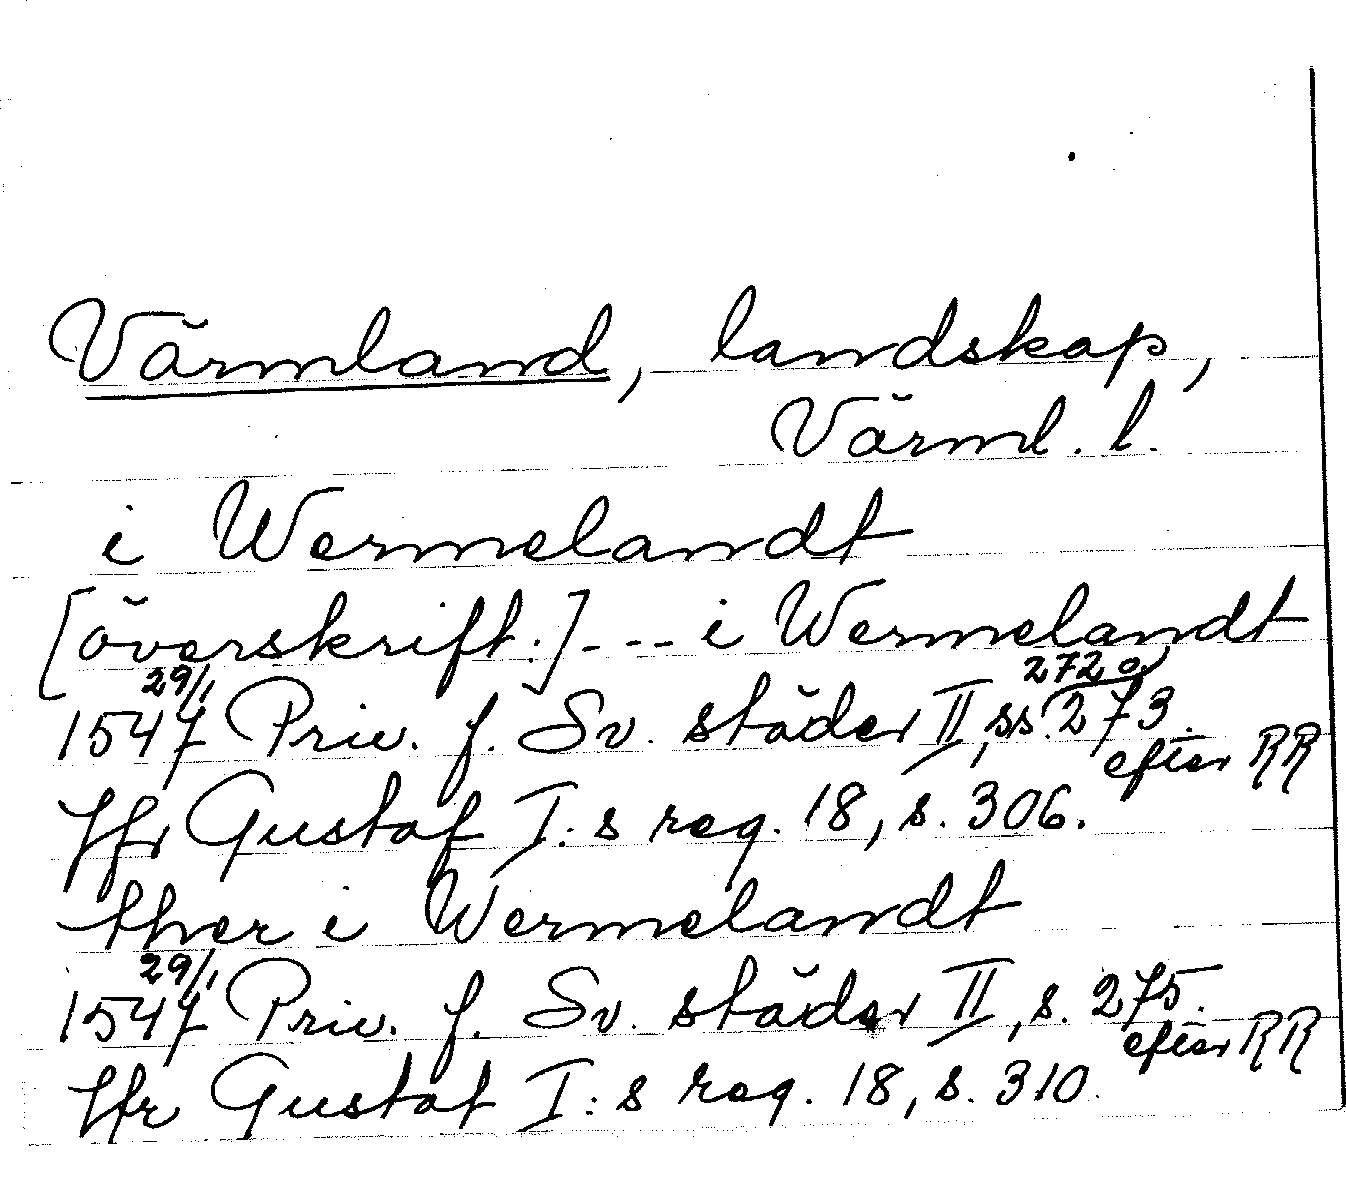 Värmland, landskap,
Värml. l.
i Wermelandt
[överskrift:]--- i Wermelandt
29/1 272 o
1547 Priv. f. Sv. städer II, ss. 273.
efter RR
Jfr Gustaf I:s reg. 18, s. 306.
ther i Wermelandt
29/1
1547 Priv. f. Sv. städer II, s. 275.
efter RR
Jfr Gustaf I:s reg. 18, s. 310.